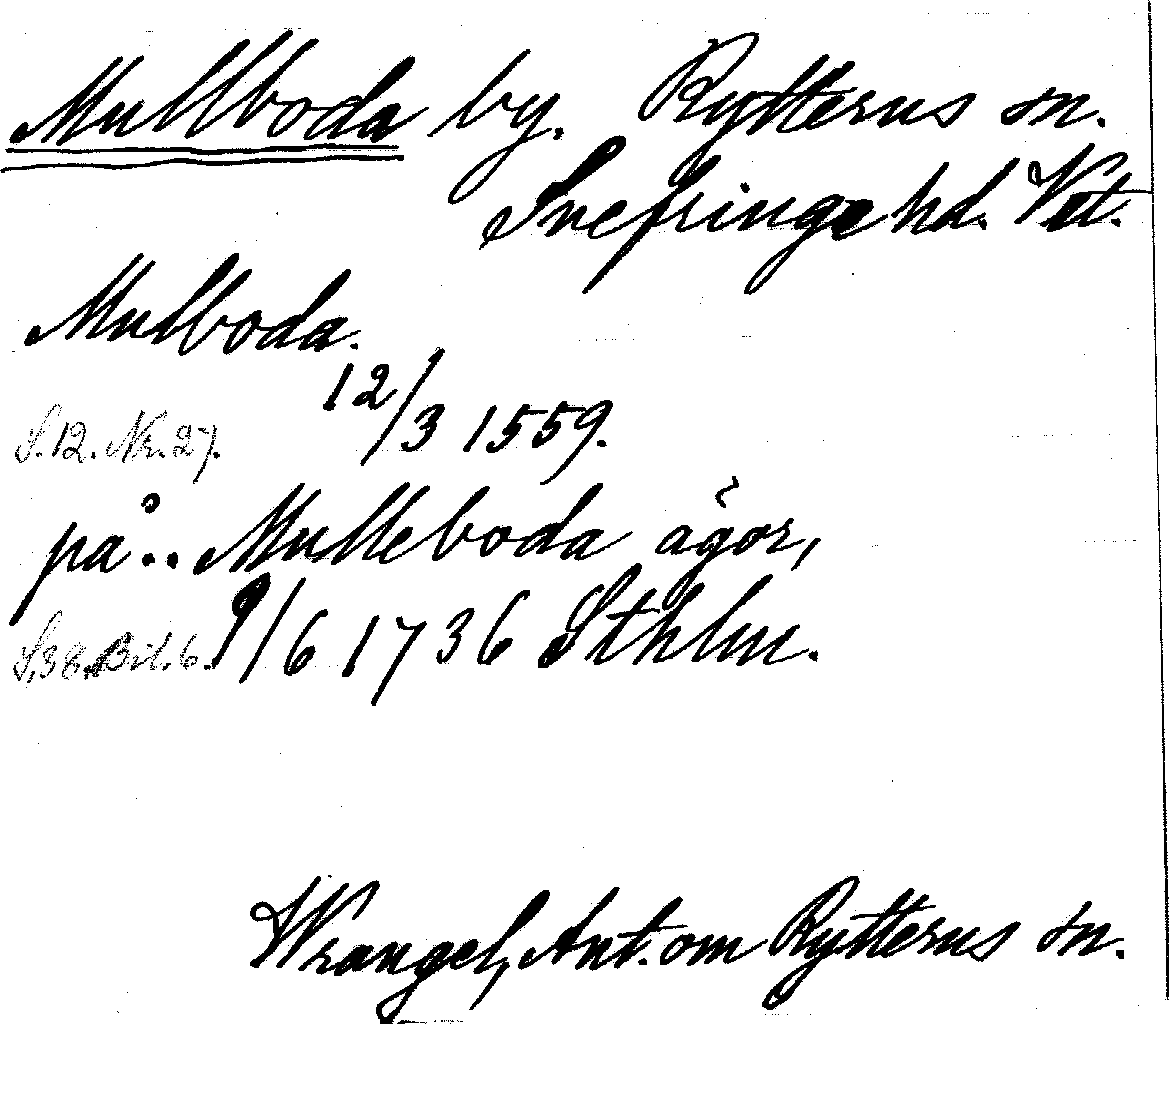 Mullboda by. Rytterus sn.
Snefringe hd. Vst.
Mulboda.
12/3 1559.
S. 12. Nr. 27.
på .. Mulleboda ägor,
S. 38. Bil. 6. 9/6 1736 Sthlm.
Wrangel, Ant. om Rytterus sn.